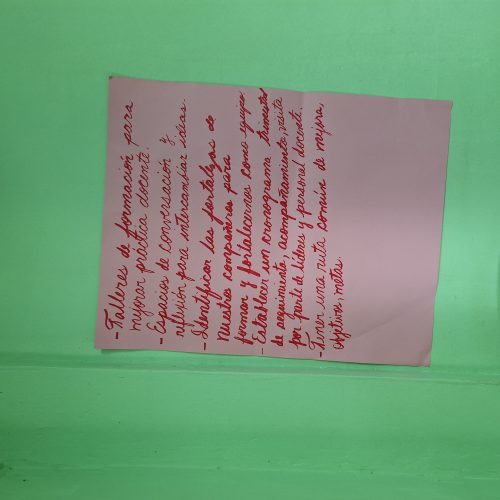 - Talleres de formación para
mejorar práctica docente.
- Espacios de conversación y
relexión para intercambiar ideas.
- Identificar las fortalezas de
nuestros compañeros para
formar y fortalecernos como equipo
- Establecer un cronograma trimestral
de seguimiento, acompañamiento, visita
por parte de líderes y personal docente.
- Tener una ruta común de mejora,
objetivos, metas.